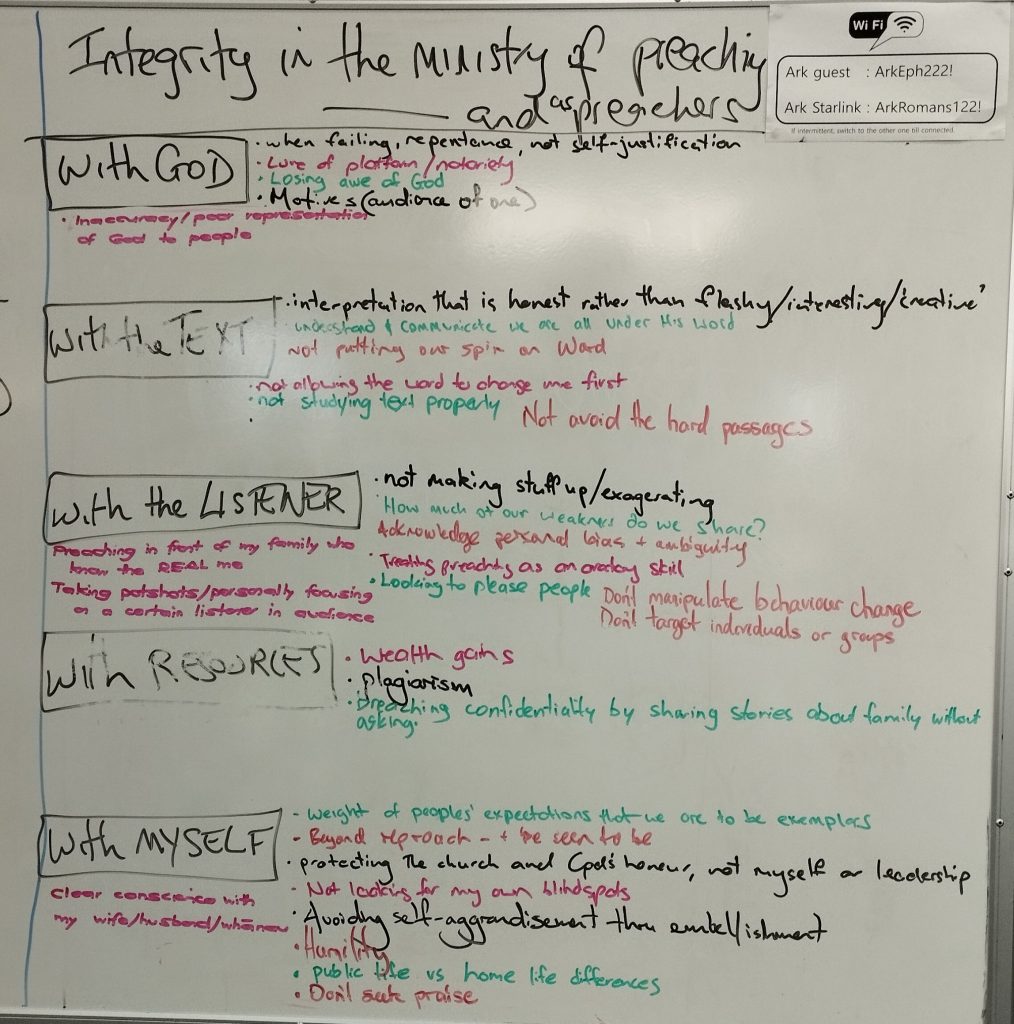 Integrity in the Ministry of preaching
and as preachers
Wi Fi
Ark guest : ArkEph222!
Ark Starlink : ArkRomans122!
If intermittent, switch to the other one till connected.
With GOD
• when failing, repentance, not self-justification
• Lure of platform/notoriety
• Losing awe of God
• Motives (audience of one)
• Inaccuracy/poor representation
of God to people
With the TEXT
• interpretation that is honest rather than flashy/interesting/'creative'
• understand & communicate we are all under His Word
Not putting our spin on Word
• not allowing the word to change me first
• not studying text properly
Not avoid the hard passages
With the LISTENER
• not making stuff up/exagerating
How much of our weakness do we share?
Acknowledge personal bias + ambiguity
• Treating preaching as an oratory skill
• Looking to please people
Don't manipulate behaviour change
Don't target individuals or groups
Preaching in front of my family who
know the REAL me
Taking potshots/personally focusing
on a certain listener in audience
With RESOURCES
• Wealth gains
• plagiarism
• Breaching confidentiality by sharing stories about family without
asking.
With MYSELF
• Weight of peoples' expectations that we are to be exemplars
• Beyond reproach - + be seen to be
• protecting the church and God's honour, not myself or leadership
• Not looking for my own blindspots
• Avoiding self-aggrandisement thru embellishment
• Humility
• public life vs home life differences
• Don't seek praise
Clear conscience with
my wife/husband/whānau